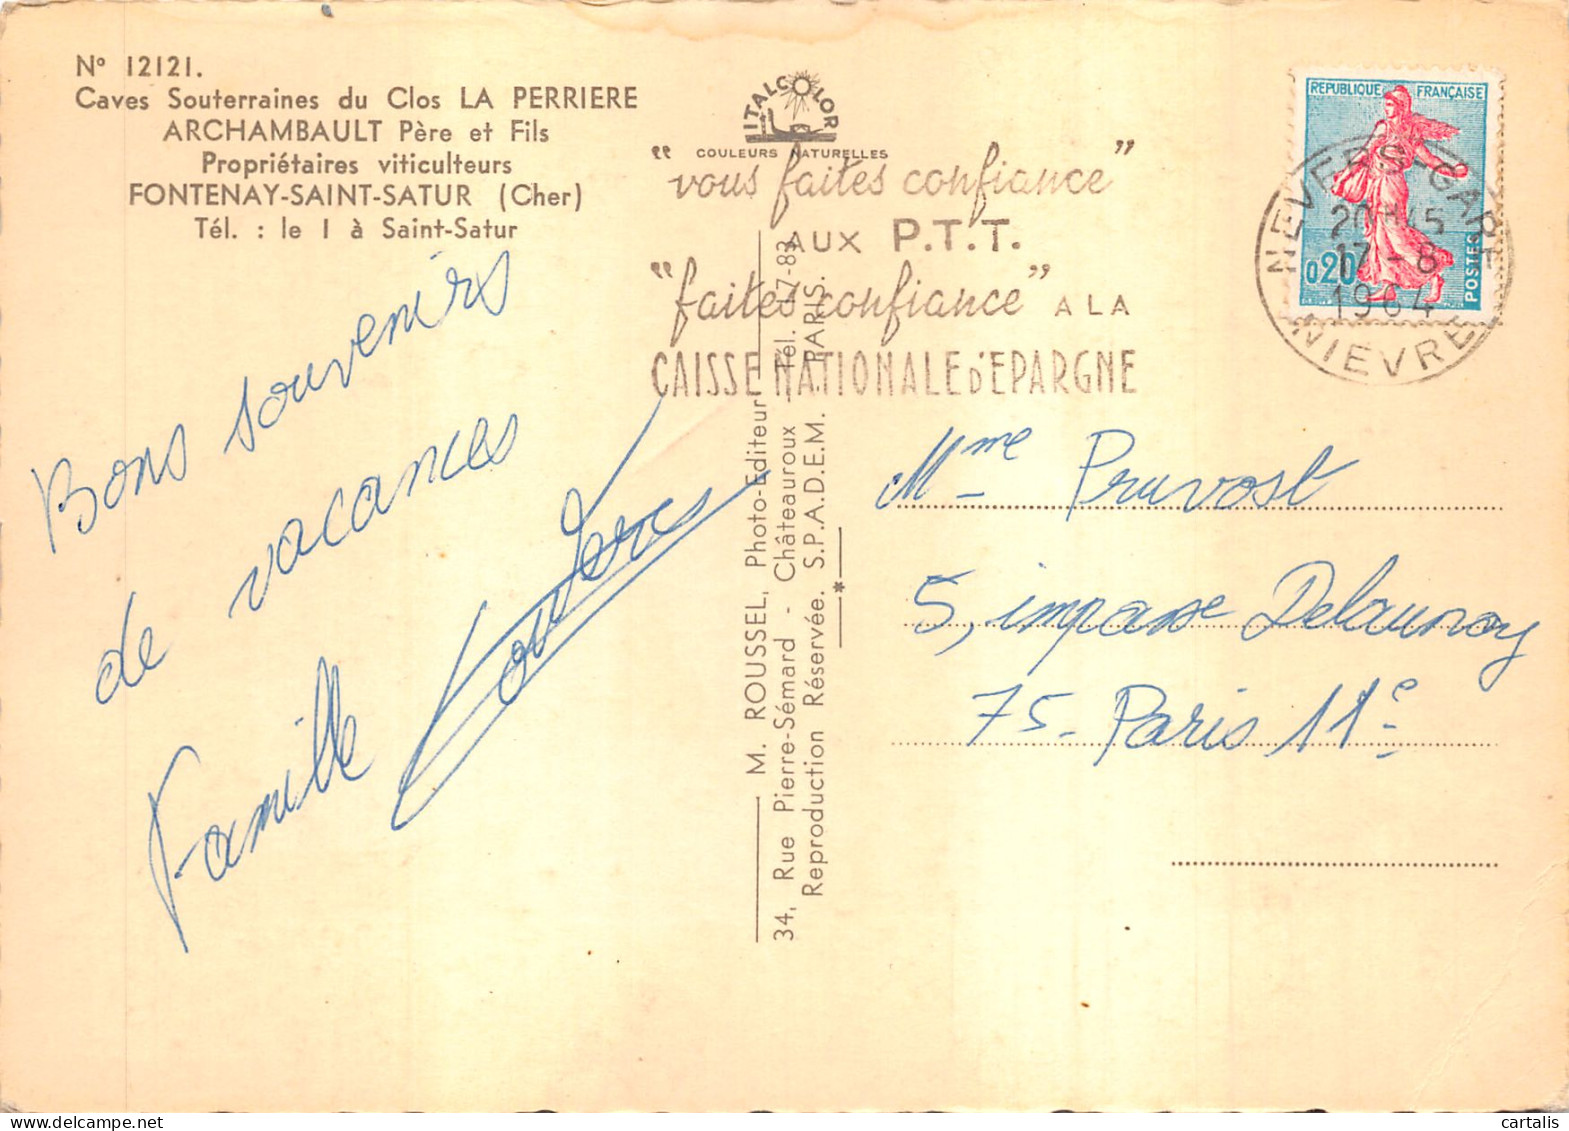 N° 12121.
Caves Souterraines du Clos LA PERRIERE
ARCHAMBAULT Père et Fils
Propriétaires viticulteurs
FONTENAY-SAINT-SATUR (Cher)
Tél. : le 1 à Saint-Satur
Bons souvenirs
de vacances
Famille
ITALCOLOR
COULEURS NATURELLES
"vous faites confiance"
AUX P.T.T.
"faites confiance" A LA
CAISSE NATIONALE D'EPARGNE
M. ROUSSEL, Photo-Editeur
34, Rue Pierre-Sémard - Châteauroux - Tél. 17-83
Reproduction Réservée. S.P.A.D.E.M. PARIS.
REPUBLIQUE FRANÇAISE
0,20
POSTES
NEVERS-GARE
20H45
17-8
1964
NIEVRE
Mme Pruvost
5, impasse Delaunay
75- Paris 11e
cartalis